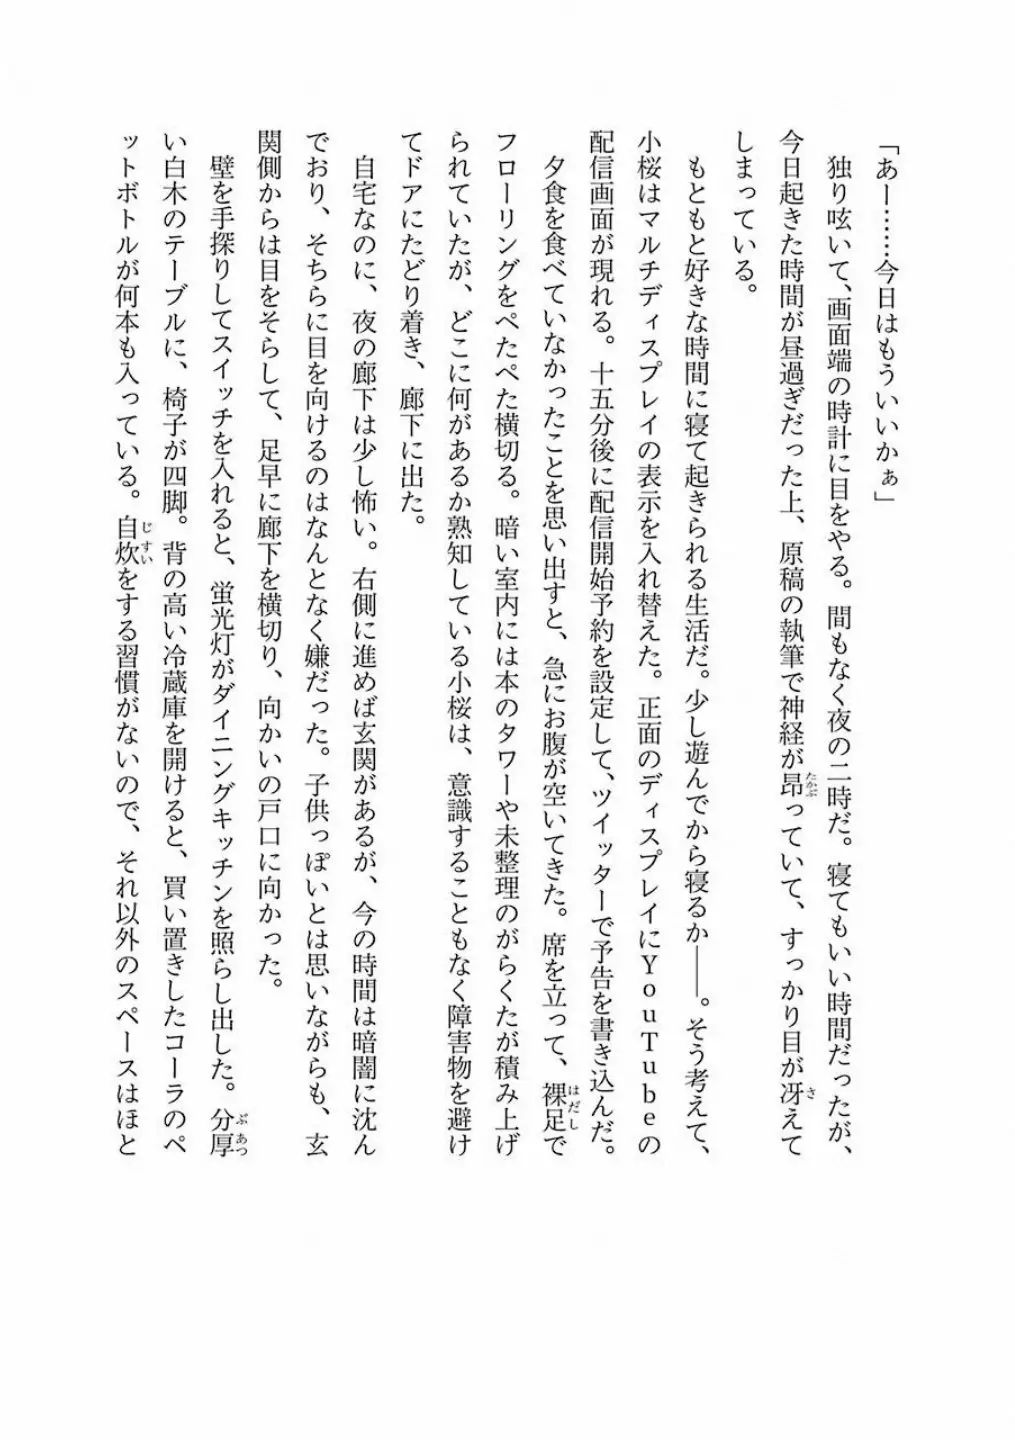 「あー……今日はもういいかぁ」
　独り呟いて、画面端の時計に目をやる。間もなく夜の二時だ。寝てもいい時間だったが、
今日起きた時間が昼過ぎだった上、原稿の執筆で神経が昂っていて、すっかり目が冴えて
しまっている。
　もともと好きな時間に寝て起きられる生活だ。少し遊んでから寝るか――。そう考えて、
小桜はマルチディスプレイの表示を入れ替えた。正面のディスプレイにＹｏｕＴｕｂｅの
配信画面が現れる。十五分後に配信開始予約を設定して、ツイッターで予告を書き込んだ。
　夕食を食べていなかったことを思い出すと、急にお腹が空いてきた。席を立って、裸足で
フローリングをぺたぺた横切る。暗い室内には本のタワーや未整理のがらくたが積み上げ
られていたが、どこに何があるか熟知している小桜は、意識することもなく障害物を避け
てドアにたどり着き、廊下に出た。
　自宅なのに、夜の廊下は少し怖い。右側に進めば玄関があるが、今の時間は暗闇に沈ん
でおり、そちらに目を向けるのはなんとなく嫌だった。子供っぽいとは思いながらも、玄
関側からは目をそらして、足早に廊下を横切り、向かいの戸口に向かった。
　壁を手探りしてスイッチを入れると、蛍光灯がダイニングキッチンを照らし出した。分厚
い白木のテーブルに、椅子が四脚。背の高い冷蔵庫を開けると、買い置きしたコーラのペ
ットボトルが何本も入っている。自炊をする習慣がないので、それ以外のスペースはほと